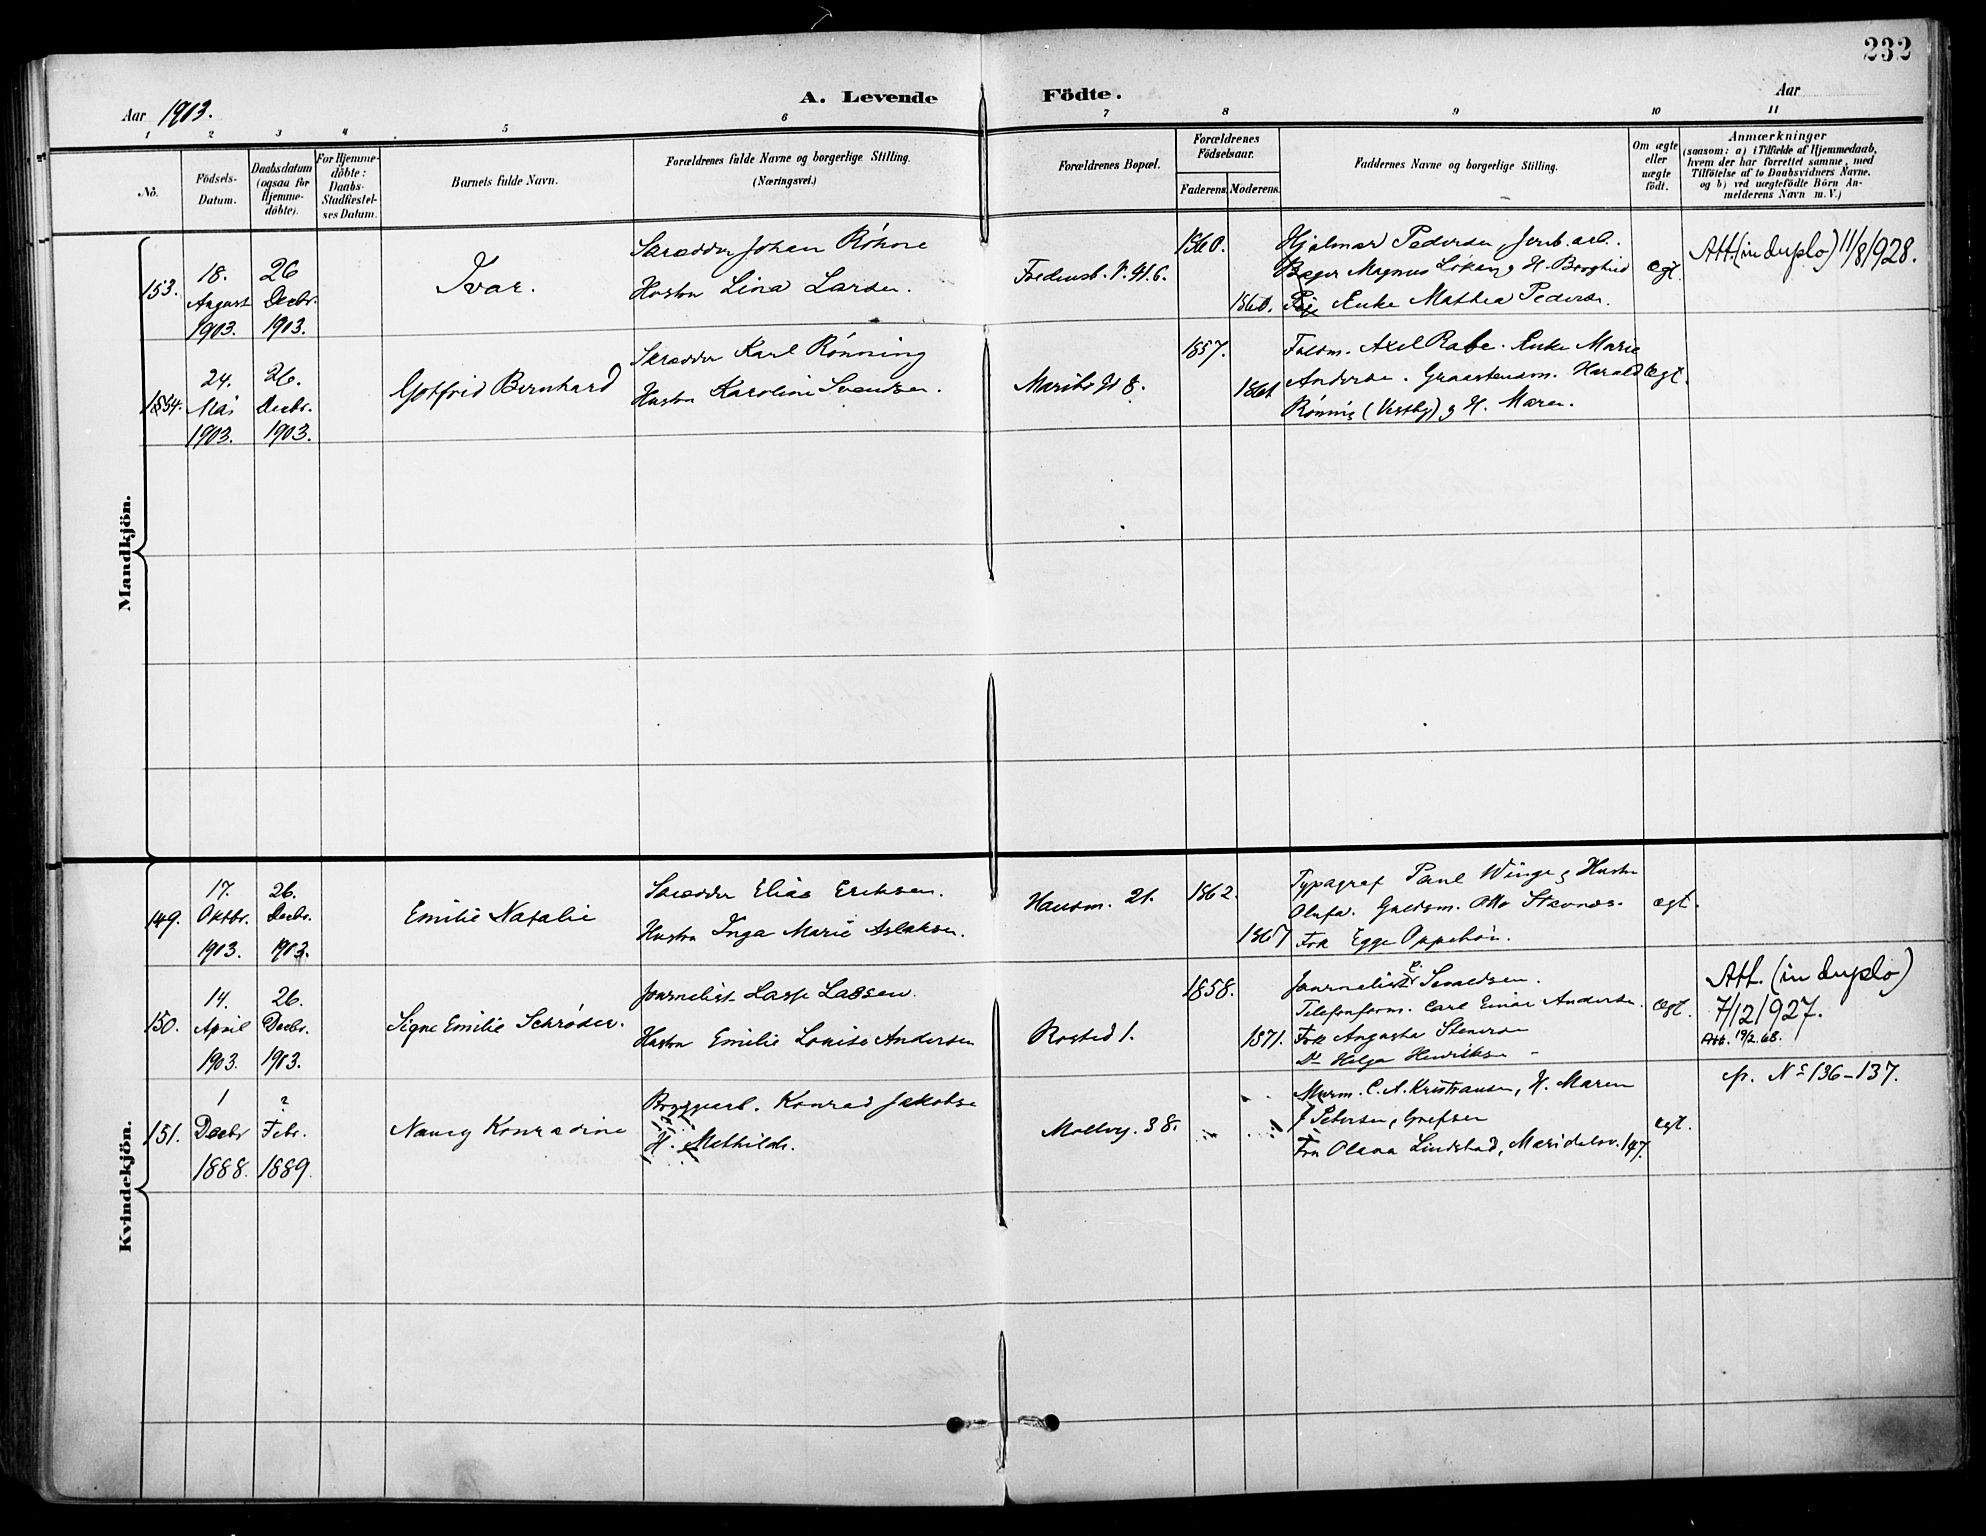 232
Aar 1903.
A. Levende Födte.
Aar
1 2 3 4 5 6 7 8 9 10 11
No.
Födsels-
Datum.
Daabsdatum
(ogsaa for
Hjemme-
döbte).
For Hjemme-
döbte:
Daabs-
Stadfæstel-
ses Datum.
Barnets fulde Navn.
Forældrenes fulde Navne og borgerlige Stilling.
(Næringsvei.)
Forældrenes Bopæl.
Forældrenes
Födselsaar.
Faderens. Moderens.
Faddernes Navne og borgerlige Stilling.
Om ægte
eller
uægte
födt.
Anmærkninger
(saasom: a) i Tilfælde af Hjemmedaab,
hvem der har forrettet samme, med
Tilföielse af to Daabsvidners Navne.
og b) ved uægtefödte Börn An-
melderens Navn m. V.)
Mandkjön.
153.
18.
August
1903.
26
Decbr.
1903.
Ivar.
Skrædder Johan Røhne
Hustru Lina Larsen.
Fredensb. V. 41 b.
1860.
1860.
Hjalmar Pedersen, Jernb. arb.
Bager Magnus Løken og H. Borghild
Enke Mathea Pedersen.
Ægt.
Att. (in duplo) 11/8 1928.
154.
24.
Mai
1903.
26.
Decbr.
1903.
Gotfrid Bernhard
Skrædder Karl Rønning
Hustru Karoline Svendsen.
Maribo Gd 8.
1857.
1861
Axel Rabe. Enke Marie
Andersen. Harald
Rønning (Vestby) og H. Maren.
Ægt.
Kvindekjön.
149.
17.
Oktbr.
1903.
26.
Decbr.
1903.
Emilie Natalie
Skrædder Elias Eriksen.
Hustru Inga Marie Aslaksen.
Hausm. 21.
1862.
1867
Typograf Paul Winge og Hustru
Olufa. Guldsm. Otto Stavnæs.
Frk Egge Oppehön.
ægt.
150.
14.
April
1903.
26.
Decbr.
1903.
Signe Emilie Schrøder.
Journalist Lasse Lassen.
Hustru Emilie Louise Andersen
Rosted 1.
1858.
1871.
Journalist
Telefonform. Carl Einar Andersen.
Frk Augusta Stenersen
Do Helga Henriksen
Ægt.
Att. (in duplo)
7/12 1927.
Att. 19/2 68.
151.
1
Decbr
1888.
?
Febr.
1889.
Nancy Konradine
Konrad Jakobsen
H. Mathilde.
Mollerg. 38.
Murm. C. A. Kristiansen, H. Maren
J Petersen, Grefsen
Fru Olava Lindstad, Maridalsv. 197.
ægt.
cfr. No 136-137.